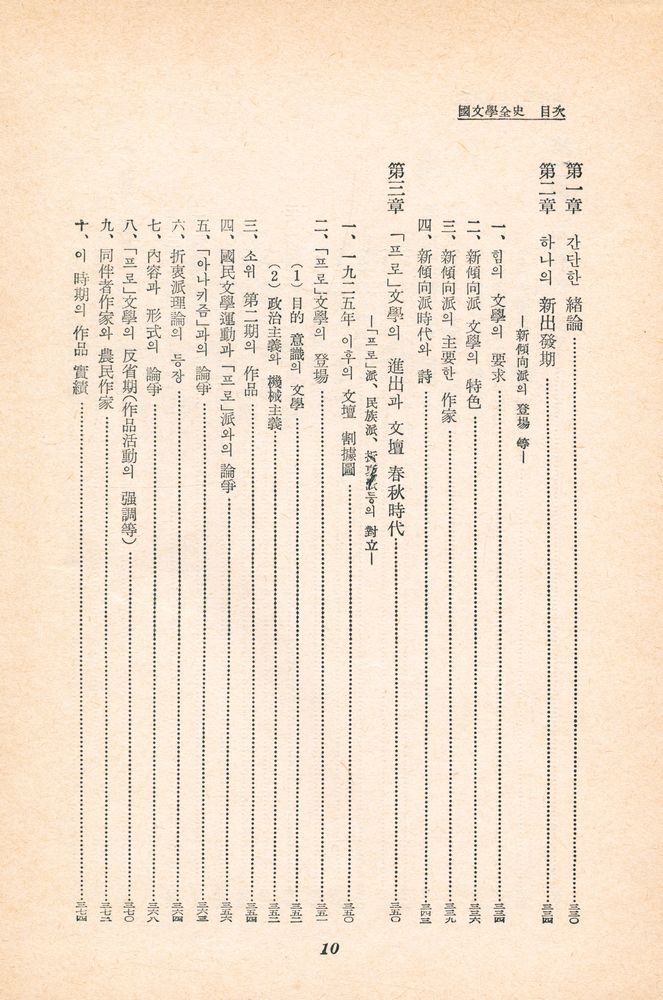 國文學全史 目次
第一章 간단한 緖論……三三〇
第二章 하나의 新出發期……三三四
—新傾向派의 登場 等—
一、힘의 文學의 要求……三三四
二、新傾向派 文學의 特色……三三六
三、新傾向派의 主要한 作家……三三九
四、新傾向派時代와 詩……三四三
第三章 「프로」文學의 進出과 文壇 春秋時代……三五〇
—「프로」派、民族派、折衷派등의 對立—
一、一九二五年 이후의 文壇 割據圖……三五〇
二、「프로」文學의 登場……三五一
(1) 目的 意識의 文學……三五二
(2) 政治主義와 機械主義……三五二
三、소위 第二期의 作品……三五四
四、國民文學運動과 「프로」派와의 論爭……三五六
五、「아나키즘」과의 論爭……三六三
六、折衷派理論의 등장……三六四
七、內容과 形式의 論爭……三六八
八、「프로」文學의 反省期(作品活動의 强調等)……三七〇
九、同伴者作家와 農民作家……三七二
十、이 時期의 作品 實績……三七四
10